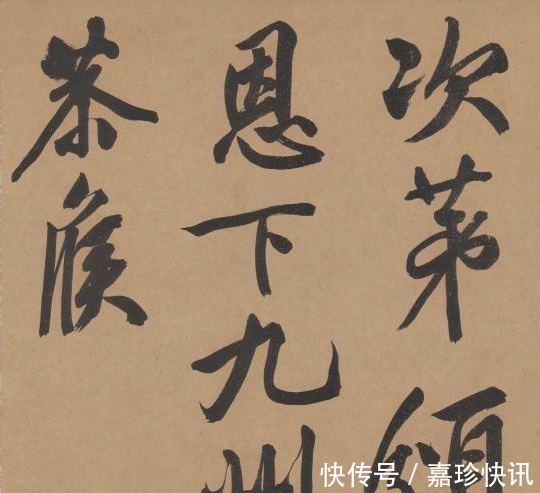 次第頒
恩下九州
恭候
快传号 / 嘉珍快讯